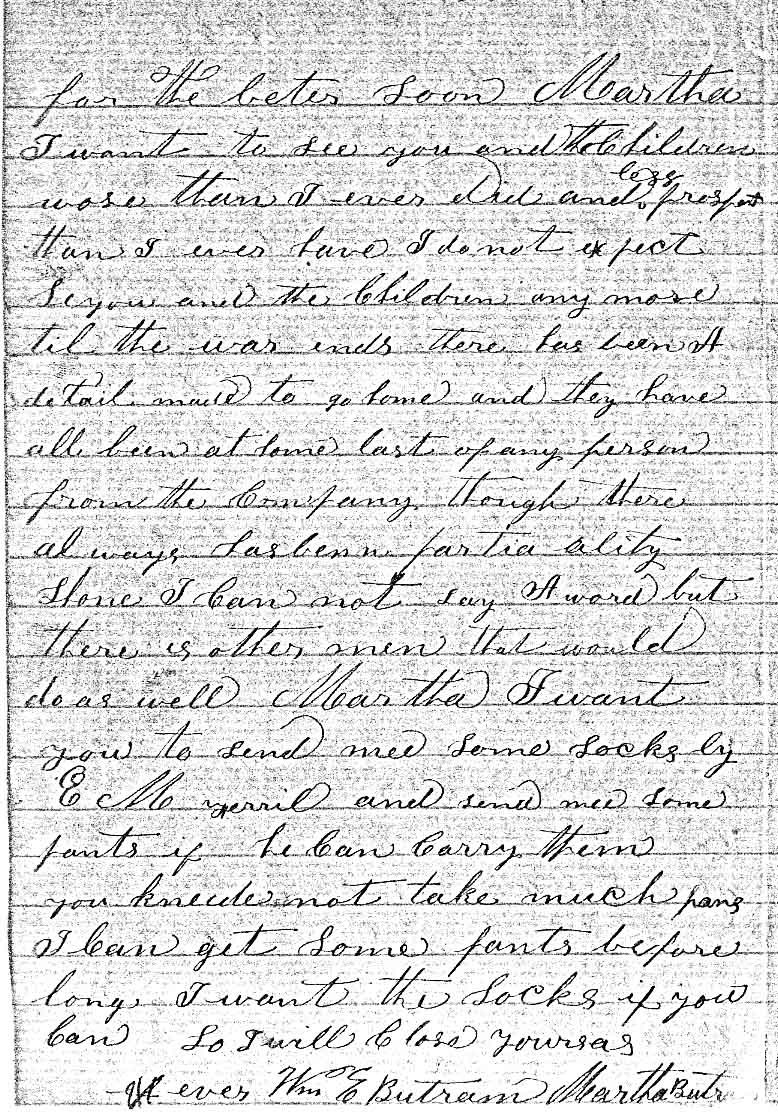 for the beter soon Martha
I want to see you and the Children
wose than I ever did and less prospect
than I ever have I do not expect
Se you and the Children any more
til the war ends there has been A
detail made to go home and they have
all been at home last of any person
from the Company though there
al ways has benn partia ality
Shone I Can not say A word but
there is other men that would
do as well Martha I want
you to send mee some socks by
E M yerril and send mee some
pants if he Can Carry them
you kneede not take much pans
I Can get some pants before
long I want the socks if you
Can So I will Close yours as
ever Wm E Butram Martha Butr